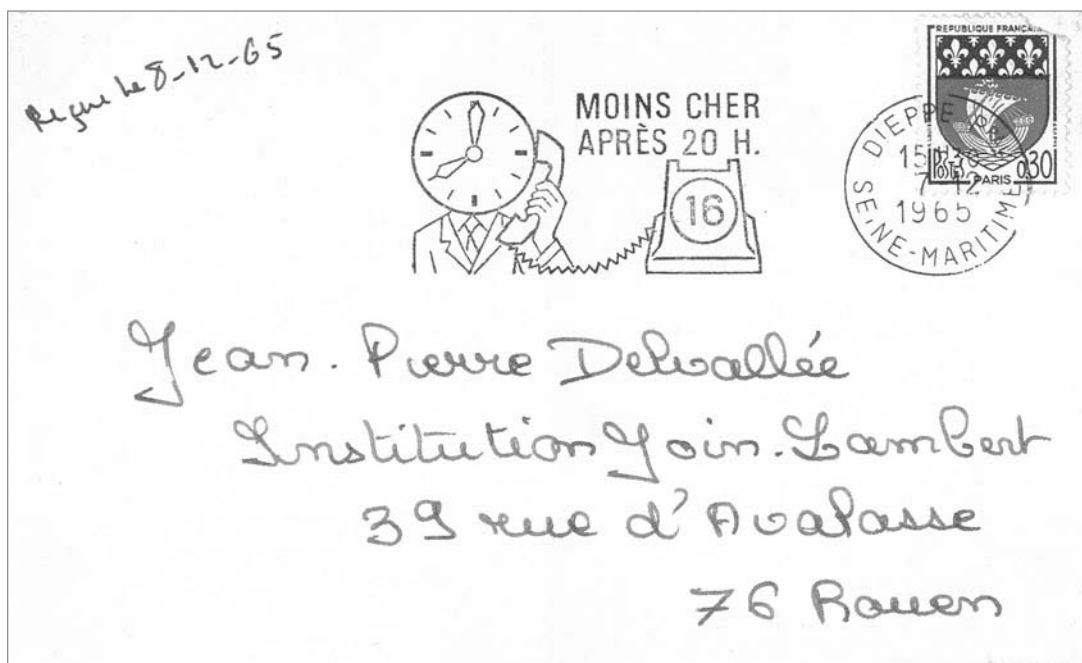 Reçue le 8-12-65
MOINS CHER
APRÈS 20 H.
16
REPUBLIQUE FRANÇAISE
POSTES 0,30
PARIS
DIEPPE
15H30
7-12
1965
SEINE-MARITIME
Jean-Pierre Delvallée
Institution Join-Lambert
39 rue d'Avalasse
76 Rouen